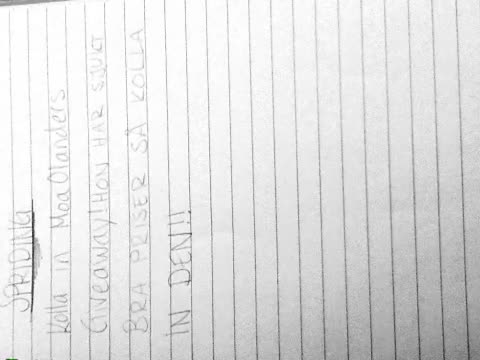 SPRIDNING
Kolla in MoaOlanders
Giveaway! HON HAR SJUKT
BRA PRISER SÅ KOLLA
IN DEN!!